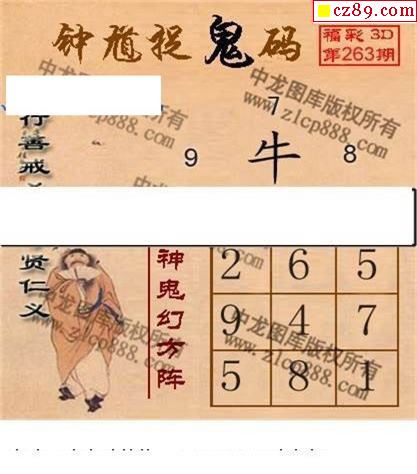 cz89.com
钟馗捉鬼码
福彩3D
第263期
中龙图库版权所有
www.zlcp888.com
行善戒
7
9
牛
8
贤仁义
神鬼幻方阵
2 6 5
9 4 7
5 8 1
中龙图库版权所有
www.zlcp888.com